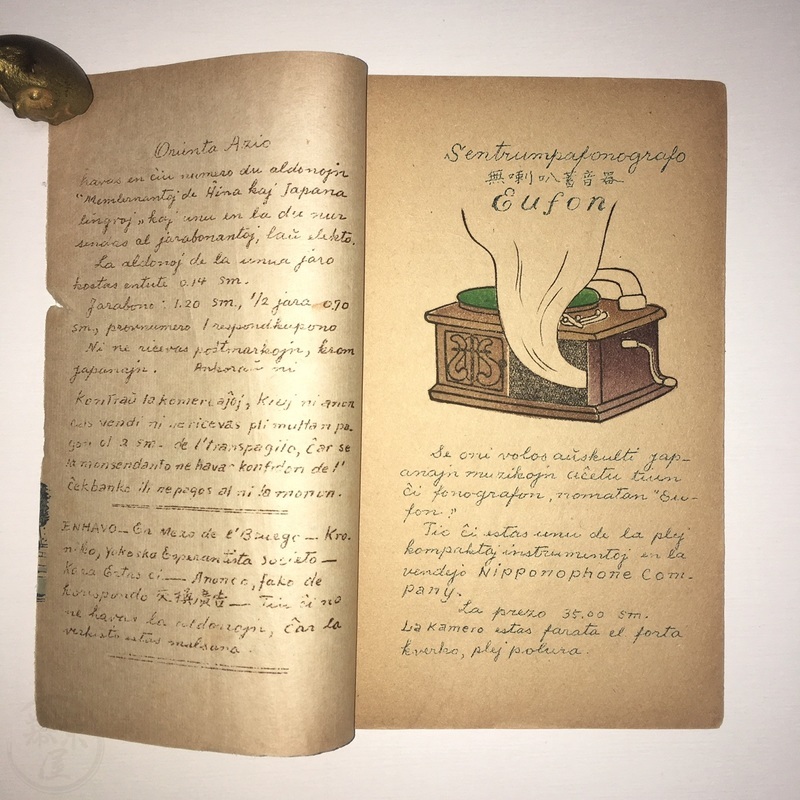 Orienta Azio
havas en ĉiu numero du aldonojn
"Memlernantoj de Ĥina kaj Japana
lingvoj" kaj unu en la du nur
sendas al jarabonantoj, laŭ elekto.
La aldonoj de la unua jaro
kostas entute 0.14 Sm.
Jarabono: 1.20 Sm., 1/2 jara 0.70
Sm, provnumero 1 respondkupono
Ni ne ricevas poŝtmarkojn, krom
japanajn. Ankoraŭ ni
Kontraŭ la komercaĵoj, kiujn ni anon
cas vendi ni ne ricevas pli multan pa-
gon ol 2 sm. de l'transpagilo, ĉar se
la monsendanto ne havas konfidon de l'
ĉekbanko ili ne pagos al ni la monon.
ENHAVO— En Mezo de l'Bruego — Kro-
niko, Yokosko Esperantista Societo —
Anonco, fako de
korespondo 交換廣告 — Tiu ĉi no
ne havas la aldonojn, ĉar la
verkisto estas malsana.
Sentrumpafonografo
無喇叭蓄音器
Eufon
Se oni volos aŭskulti jap-
anajn muzikojn aĉetu tiun
ĉi fonografon, nomatan "Eu-
fon."
Tio ĉi estas unu de la plej
kompaktaj instrumentoj en la
vendejo Nipponophone Com-
pany.
La prezo 35.00 Sm.
La Kamero estas farata el forta
kverko, plej polura.